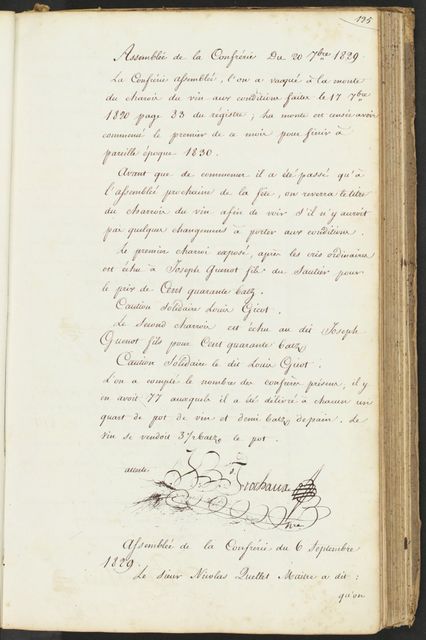 135
Assemblée de la Confrérie Du 20 7bre 1829.
La Confrérie assemblée, l'on a vaqué à la monte
du charoi du vin aux conditions faites le 17 7bre
1820 page 33 du régistre ; ha monte est censée avoir
commencé le premier de ce mois pour finir à
pareille époque 1830.
Avant que de commencer il a été passé qu'à
l'assemblée prochaine de la fete, on reverra le titre
du charroi du vin afin de voir s'il n'y auroit
pas quelque changemens à porter aux conditions.
Le premier charroi exposé, après les cries ordinaires
est échu à Joseph Quenot fils du Sautier pour
le prix de Cent quarante batz.
Caution solidaire Louis Gicot.
Le Second charroi est échu au dit Joseph
Quenot fils pour Cent quarante batz
Caution Solidaire le dit Louis Gicot.
L'on a compté le nombre des confrères présens, il y
en avoit 77 auxquels il a été délivré à chacun un
quart de pot de vin et demi batz de pain. Le
vin se vendoit 3 1/2 batz le pot.
atteste
Frochaux
Assemblée de la Confrérie du 6 Septembre
1829.
Le sieur Nicolas Quellet Maitre a dit :
qu'on